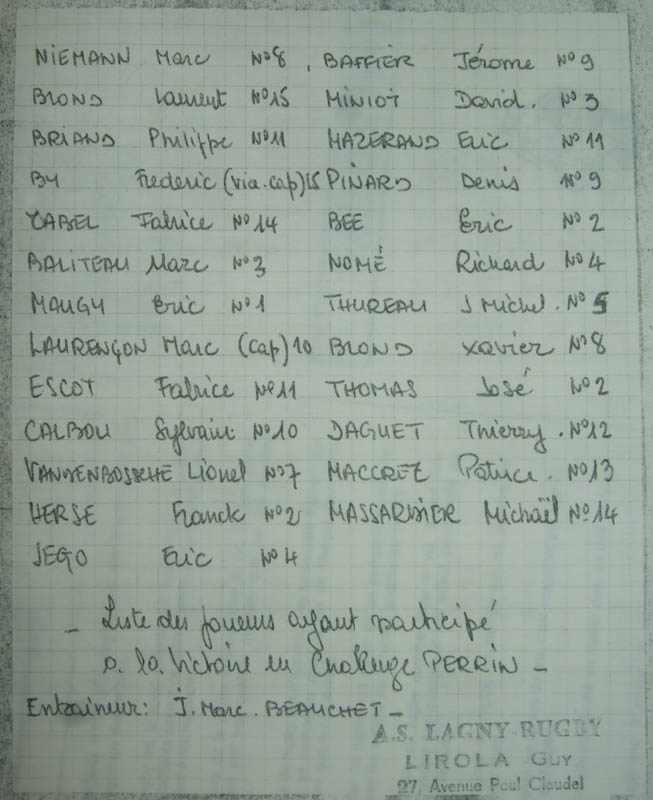 NIEMANN Marc N°8, BAFFIER Jérome N°9
BLOND Laurent N°15 MINIOT David. N°3
BRIAND Philippe N°11 MAZERAND Eric N°11
BY Frederic (via.cap)15 PINARD Denis N°9
CABEL Fabrice N°14 BEE Eric N°2
BALITEAU Marc N°3 NOMÉ Richard N°4
MAUGY Eric N°1 THUREAU J Michel. N°5
LAURENÇON Marc (cap)10 BLOND Xavier N°8
ESCOT Fabrice N°11 THOMAS José N°2
CALBOU Sylvain N°10 DAGUET Thierry. N°12
VANDENBOSSCHE Lionel N°7 MACCREZ Patrice. N°13
HERSE Franck N°2 MASSARDIER Michaël N°14
JEGO Eric N°4
_ Liste des joueurs ayant participé
a la victoire en Challenge PERRIN _
Entraineur: J. Marc. BEAUCHET _
A.S. LAGNY-RUGBY
LIROLA GUY
27, Avenue Paul Claudel